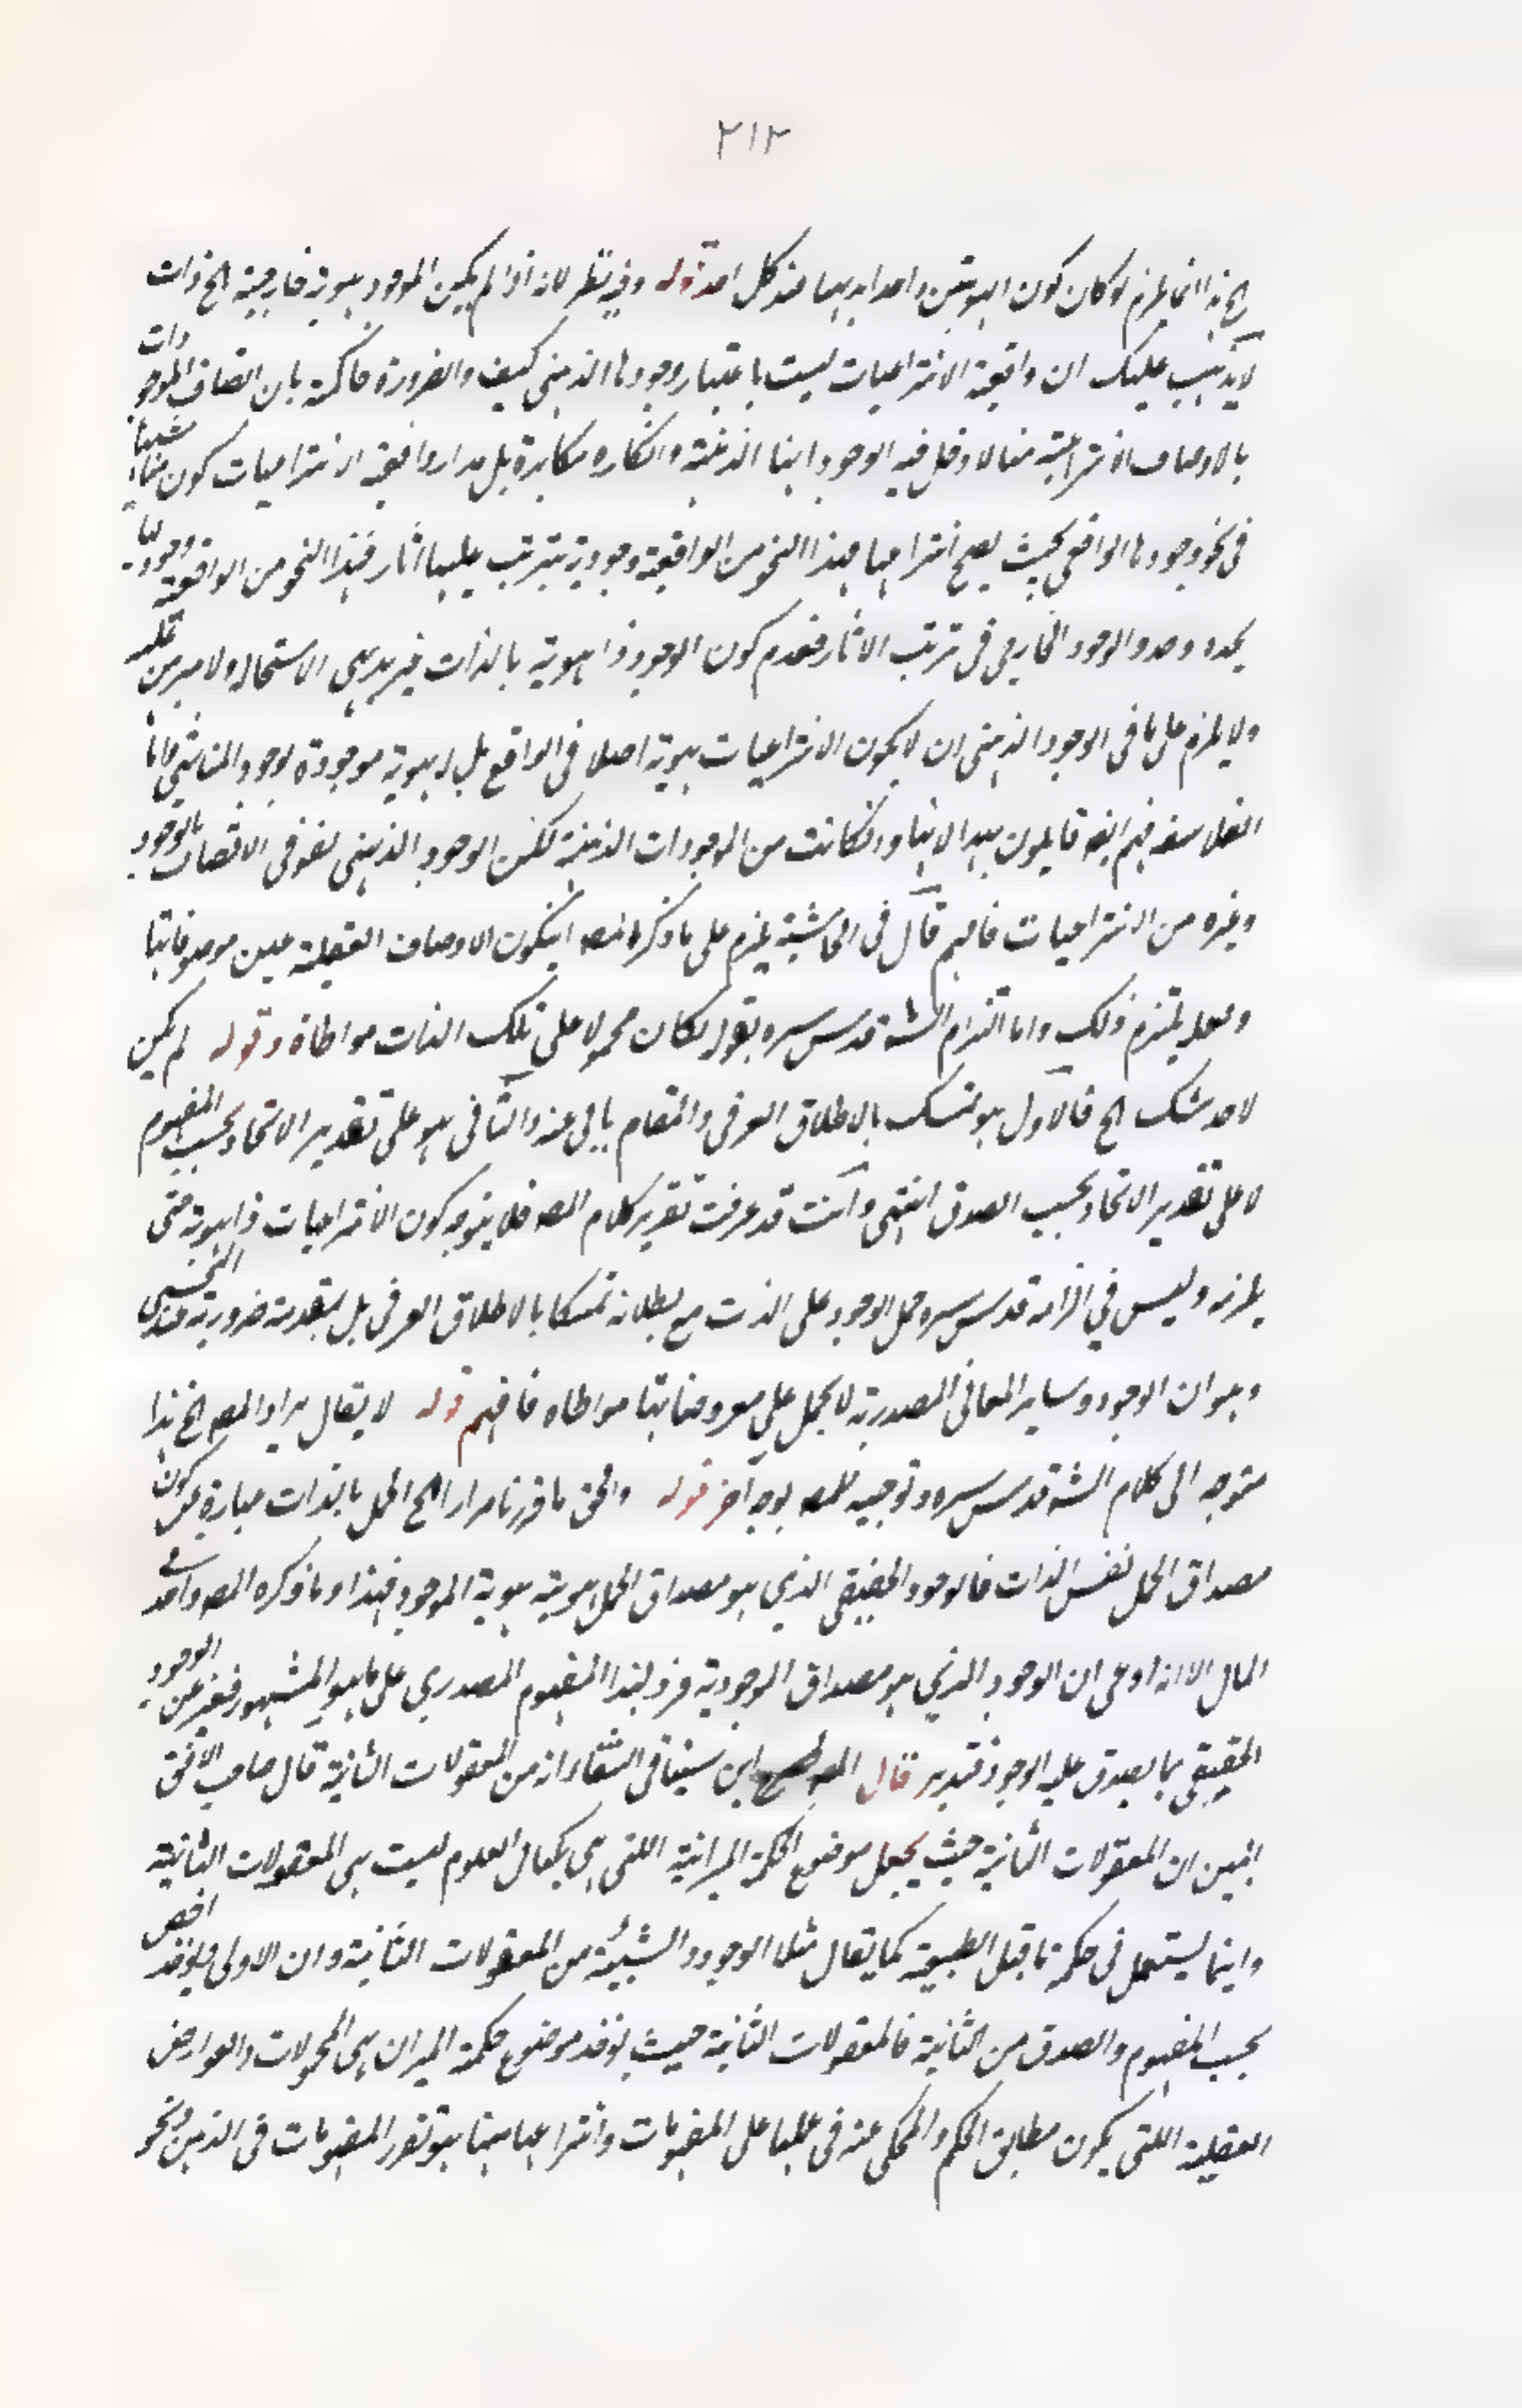 ٢١٢
الخ هذا انما يلزم لو كان كون الهويتين واحدا بديهيا عند كل احد قوله وفيه نظر لانه اذا لم يكن الموجود هوية خارجية الخ ذات
لا يذهب عليك ان واقعية الانتزاعيات ليست باعتبار وجودها الذهني كيف والضرورة حاكمة بان اتصاف الموجودات
بالاوصاف الانتزاعية مما لا دخل فيه لوجود ابنا الذهنية وانكاره مكابرة بل مدار واقعية الانتزاعيات كون مناشيها
في نحو وجودها الواقعي بحيث يصح انتزاعها فهذا النحو من الواقعية وجودية يترتب عليها اثار فهذا النحو من الواقعية وجود لها
يحذو حذو الوجود الخارجي في ترتب الاثار فعدم كون الوجود ذا هوية بالذات غير بديهي الاستحالة ولا مبرهن عليه
ولا يلزم على نافي الوجود الذهني ان لا يكون الانتزاعيات هوية اصلا في الواقع بل لها هوية موجودة بوجود المناشي واما
الفلاسفة فهم ايضا قايلون بهذا لانها وان كانت من الموجودات الذهنية لكن الوجود الذهني لغو في الاتصاف بالوجود
وغيره من الانتزاعيات فافهم قال في الحاشية يلزم على ما ذكره المصه ان يكون الاوصاف العقلية عين موصوفاتها
ولعله يلتزم ذلك واما التزام الشه قدس سره بقوله لكان محمولا على تلك الذات مواطاة وقوله لم يكن
لاحد شك الخ فالاول هو تمسك بالاطلاق العرفي والمقام يابى عنه والثاني هو على تقدير الاتحاد بحسب المفهوم
لا على تقدير الاتحاد بحسب الصدق انتهى وانت قد عرفت تقرير كلام المصه فلا يتوجه كون الانتزاعيات ذا هوية حتى
يلزمه وليس في الزامه قدس سره حمل الوجود على الذات مع بطلانه تمسكا بالاطلاق العرفي بل بمقدمة ضرورية عند
وهو ان الوجود وساير المعاني المصدرية لا يحمل على معروضاتها مواطاه فافهم قوله لا يقال مراد المصه الخ هذا
متوجه الى كلام الشه قدس سره وتوجيه للمصه بوجه آخر قوله والحق ما قررنا مرارا الخ الحمل بالذات عبارة عن كون
مصداق الحمل نفس الذات فالوجود الحقيقي الذي هو مصداق الحمل هويته هوية الموجود فهذا وما ذكره المصه واحد في
المال الا انه ادعى ان الوجود الذي هو مصداق الموجودية فرد لهذا المفهوم المصدري على ما هو المشهور فعبر عن الوجود
الحقيقي بما يصدق عليه الوجود فتدبر قال المصه ابن سينا في الشفاء انه من المعقولات الثانية قال صاحب الافق
المبين ان المعقولات الثانية حيث يجعل موضوع الحكمة الميزانية اللتي هي مكيال العلوم ليست هي المعقولات الثانية
وانما يستعمل في حكمة ما قبل الطبيعة كما يقال مثلا الوجود والشيئية من المعقولات الثانية وان الاولى ماخوذه اخص
بحسب المفهوم والصدق من الثانية فالمعقولات الثانية حيث يوخذ موضوع حكمة الميزان هي المحمولات والعوارض
العقلية اللتي يكون مطابق الحكم والمحكي عنه في حملها على المفهومات وانتزاعها منها هو تقرر المفهومات في الذهن ونحو